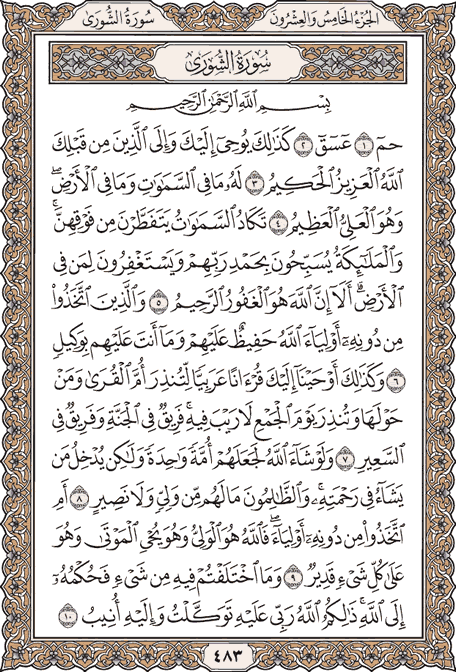 الجزء الخامس والعشرون
سورة الشورى
سُورَةُ الشُّورَىٰ
بِسْمِ اللَّهِ الرَّحْمَٰنِ الرَّحِيمِ
حمٓ ١ عٓسٓقٓ ٢ كَذَٰلِكَ يُوحِىٓ إِلَيْكَ وَإِلَى الَّذِينَ مِن قَبْلِكَ
اللَّهُ الْعَزِيزُ الْحَكِيمُ ٣ لَهُۥ مَا فِى السَّمَٰوَٰتِ وَمَا فِى الْأَرْضِ ۖ
وَهُوَ الْعَلِىُّ الْعَظِيمُ ٤ تَكَادُ السَّمَٰوَٰتُ يَتَفَطَّرْنَ مِن فَوْقِهِنَّ ۚ
وَالْمَلَٰٓئِكَةُ يُسَبِّحُونَ بِحَمْدِ رَبِّهِمْ وَيَسْتَغْفِرُونَ لِمَن فِى
الْأَرْضِ ۗ أَلَآ إِنَّ اللَّهَ هُوَ الْغَفُورُ الرَّحِيمُ ٥ وَالَّذِينَ اتَّخَذُوا۟
مِن دُونِهِۦٓ أَوْلِيَآءَ اللَّهُ حَفِيظٌ عَلَيْهِمْ وَمَآ أَنتَ عَلَيْهِم بِوَكِيلٍ
٦ وَكَذَٰلِكَ أَوْحَيْنَآ إِلَيْكَ قُرْءَانًا عَرَبِيًّا لِّتُنذِرَ أُمَّ الْقُرَىٰ وَمَنْ
حَوْلَهَا وَتُنذِرَ يَوْمَ الْجَمْعِ لَا رَيْبَ فِيهِ ۚ فَرِيقٌ فِى الْجَنَّةِ وَفَرِيقٌ فِى
السَّعِيرِ ٧ وَلَوْ شَآءَ اللَّهُ لَجَعَلَهُمْ أُمَّةً وَٰحِدَةً وَلَٰكِن يُدْخِلُ مَن
يَشَآءُ فِى رَحْمَتِهِۦ ۚ وَالظَّٰلِمُونَ مَا لَهُم مِّن وَلِىٍّ وَلَا نَصِيرٍ ٨ أَمِ
اتَّخَذُوا۟ مِن دُونِهِۦٓ أَوْلِيَآءَ ۖ فَاللَّهُ هُوَ الْوَلِىُّ وَهُوَ يُحْىِ الْمَوْتَىٰ وَهُوَ
عَلَىٰ كُلِّ شَىْءٍ قَدِيرٌ ٩ وَمَا اخْتَلَفْتُمْ فِيهِ مِن شَىْءٍ فَحُكْمُهُۥٓ
إِلَى اللَّهِ ۚ ذَٰلِكُمُ اللَّهُ رَبِّى عَلَيْهِ تَوَكَّلْتُ وَإِلَيْهِ أُنِيبُ ١٠
٤٨٣